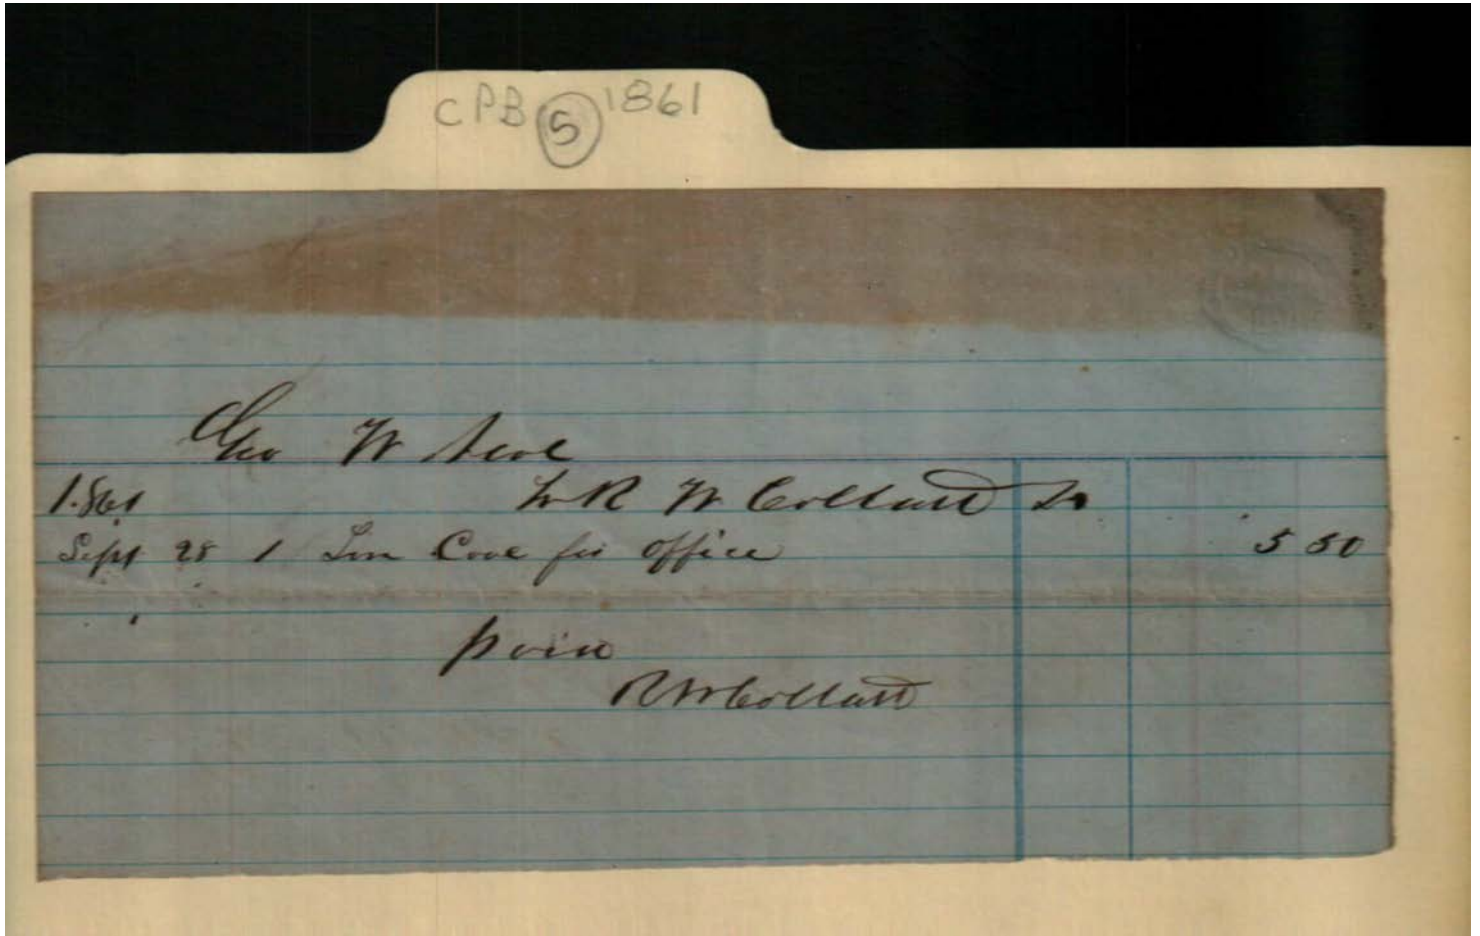 CPB 5 1861
Geo W
1861 To R W Collard Dr
Sept 28 1 Ton Coal for office 5 50
R W Collard